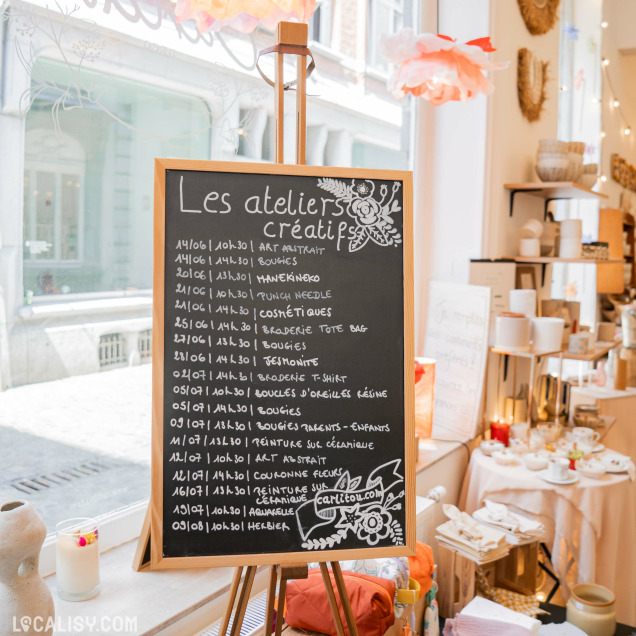 Les ateliers
créatifs
14/06 | 10h30 | ART ABSTRAIT
14/06 | 14h30 | BOUGIES
20/06 | 13h30 | MANEKINEKO
21/06 | 10h30 | PUNCH NEEDLE
21/06 | 14h30 | COSMÉTIQUES
25/06 | 14h30 | BRODERIE TOTE BAG
27/06 | 13h30 | BOUGIES
28/06 | 14h30 | JESMONITE
02/07 | 14h30 | BRODERIE T-SHIRT
05/07 | 10h30 | BOUCLES D'OREILLES RÉSINE
05/07 | 14h30 | BOUGIES
09/07 | 13h30 | BOUGIES PARENTS-ENFANTS
11/07 | 13h30 | PEINTURE SUR CÉRAMIQUE
12/07 | 10h30 | ART ABSTRAIT
12/07 | 14h30 | COURONNE FLEURS
16/07 | 13h30 | PEINTURE SUR
CÉRAMIQUE
19/07 | 10h30 | AQUARELLE
09/08 | 10h30 | HERBIER
carlitou.com
LOCALISY.COM
LOCALISY